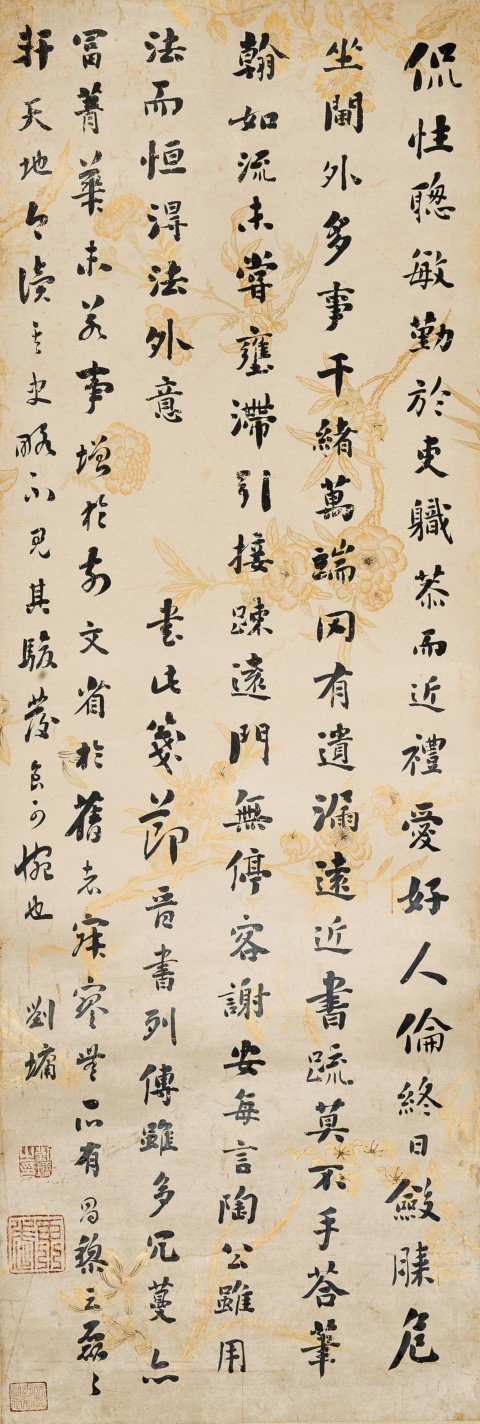 侃性聰敏勤於吏職恭而近禮愛好人倫終日斂膝危
坐閫外多事千緒萬端罔有遺漏遠近書疏莫不手荅筆
翰如流未嘗壅滯引接踈遠門無停客謝安每言陶公雖用
法而恒得法外意 書此箋節晉書列傳雖多冗蔓亦
富菁華未若事增於前文省於舊者寂寥無所有昌黎云磊々
軒天地今讀其史略不見其駿發良可惋也 劉墉